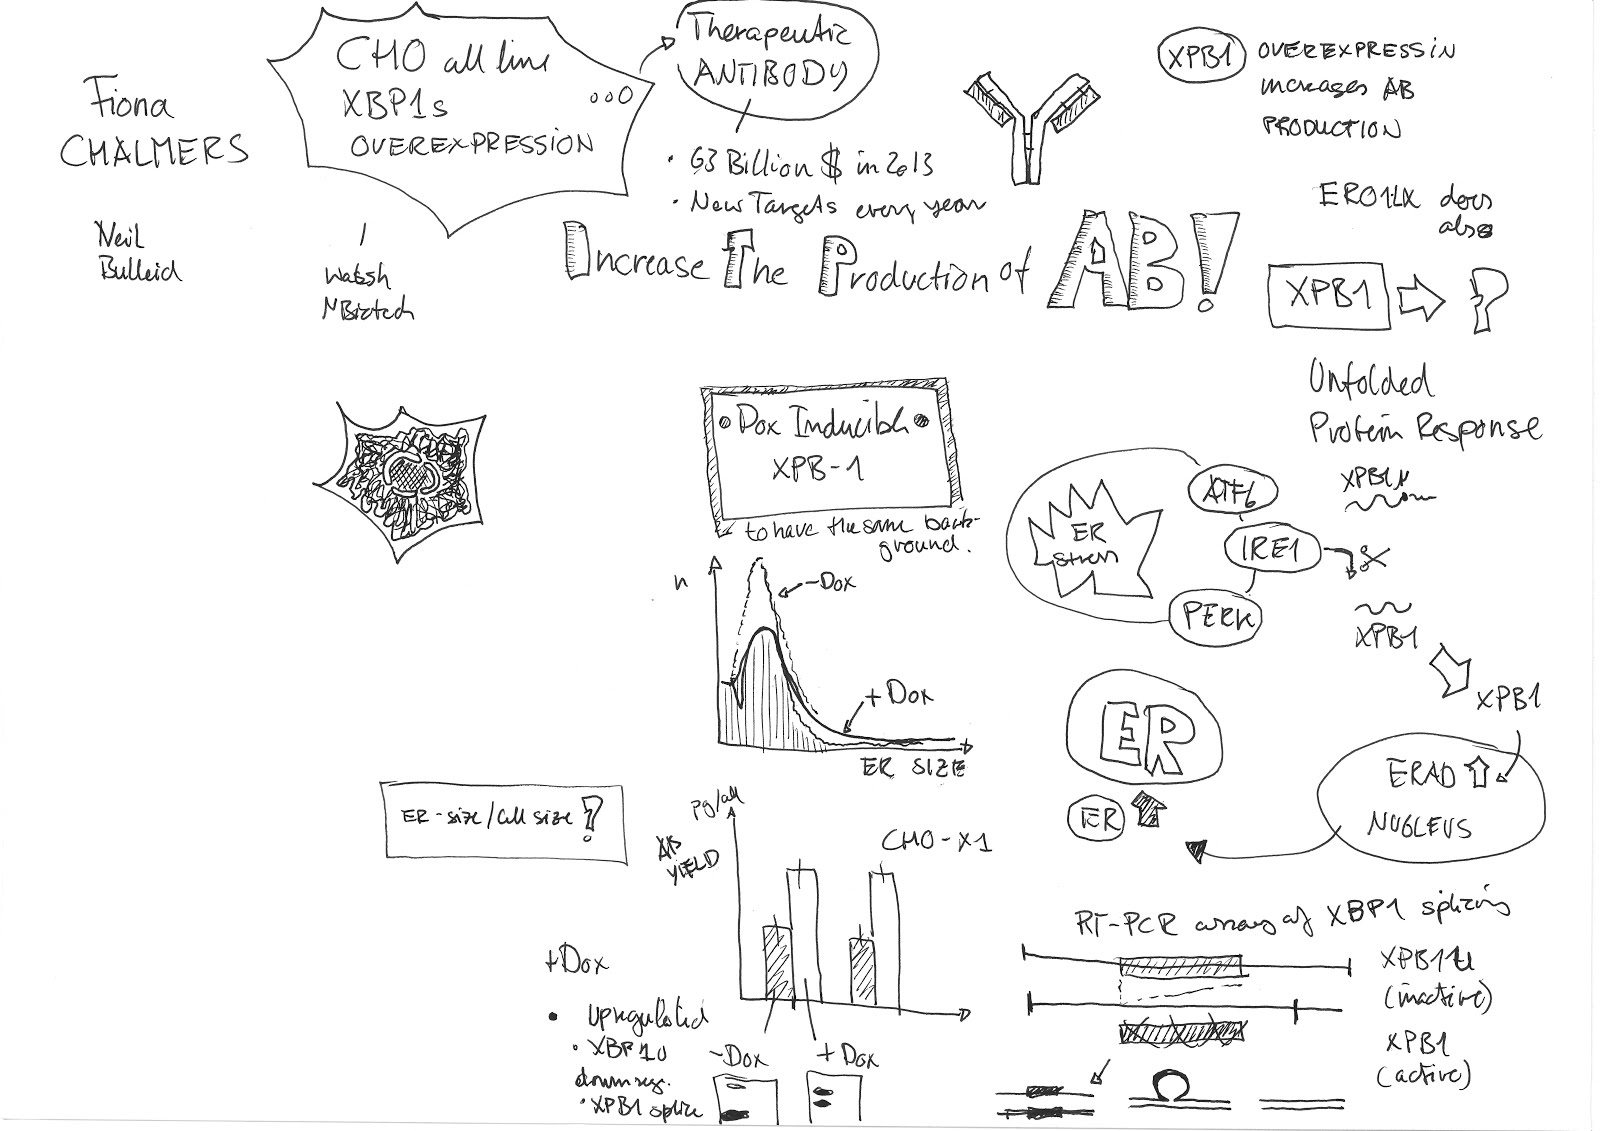 Fiona
CHALMERS
Neil
Bulleid
CHO cell line
XBP1s
OVEREXPRESSION
Therapeutic
ANTIBODY
• 63 Billion $ in 2013
• New Targets every year
Increase The Production of AB!
XPB1 OVEREXPRESSIN
increases AB
PRODUCTION
ERO1LX does
also
XPB1 ?
Unfolded
Protein Response
XPB1u
ATF6
IRE1
PERK
ER
stress
XPB1
XPB1
ERAD
NUCLEUS
ER
ER
Dox Inducible
XPB-1
to have the same back-
ground.
n
-Dox
+Dox
ER SIZE
ER-size/Cell size ?
pg/cell
AB
YIELD
CHO-X1
-Dox
+Dox
+Dox
• Upregulated
• XBP1u
downreg.
• XPB1 splice
RT-PCR array of XBP1 splicing
XPB11u
(inactive)
XPB1
(active)